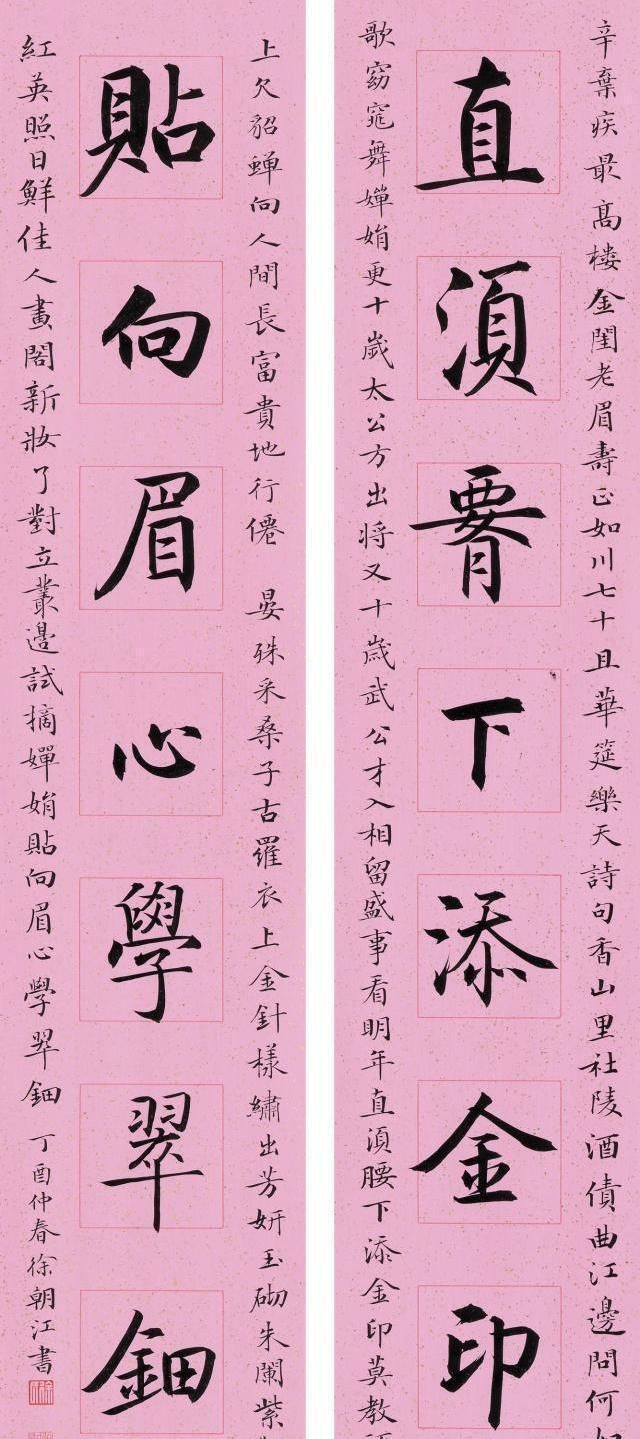 辛棄疾最高楼金閨老眉壽正如川七十且華筵樂天詩句香山里杜陵酒債曲江邊問何如
直須腰下添金印
歌窈窕舞嬋娟更十歲太公方出将又十歲武公才入相留盛事看明年直須腰下添金印莫教
上欠貂蟬向人間長富貴地行僊 晏殊采桑子古羅衣上金針樣繡出芳妍玉砌朱闌紫
貼向眉心學翠鈿
紅英照日鮮佳人畫閣新妝了對立叢邊試摘嬋娟貼向眉心學翠鈿 丁酉仲春徐朝江書